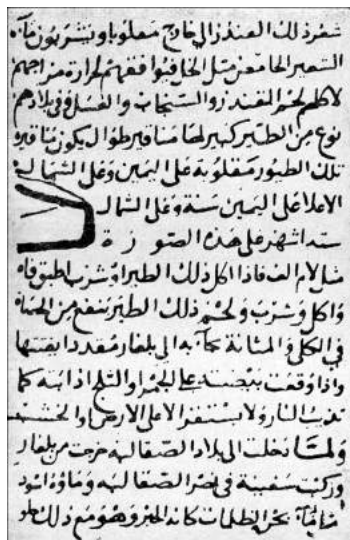 شعر ذلك القندز الى خارج مقلوبا ويشربون ماء
الشعير الحامض مثل الخل فيوافقهم لحرارة مزاجهم
لاكلهم لحم القندز والسنجاب والعسل وفي بلادهم
نوع من الطير كبير لها مناقير طوال يكون مناقير
تلك الطيور مقلوبة على اليمين وعلى الشمال
الاعلا على اليمين ستة وعلى الشمال
ستة اشهر على هذه الصورة
مثل لام الف فاذا اكل ذلك الطير او شرب اطبق فاه
واكل وشرب ولحم ذلك الطير ينفع من الحصاة
في الكلى والمثانة به الى بلغار مقددا بيضتها
واذا وقعت بيضته على الجمر او الثلج اذابته كما
تذيب النار ولا يستقر الا على الارض او الخشب
ولما دخلت الى بلاد الصقالبة خرجت من بلغار
وركبت سفينة في نهر الصقالبة وماؤه اسود
مثل ماء بحر الظلمات كانه الحبر وهو مع ذلك حلو